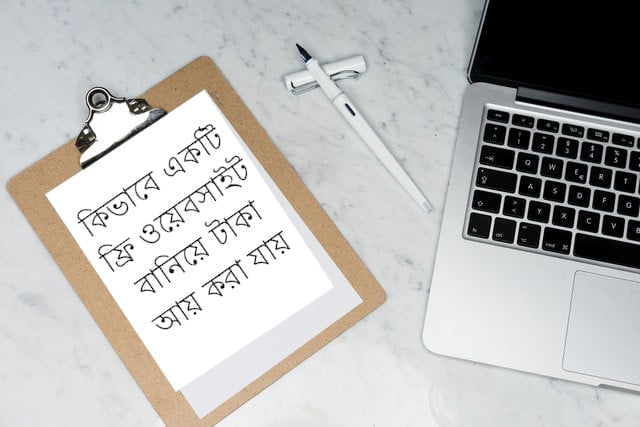 কিভাবে একটি
ফ্রি ওয়েবসাইট
বানিয়ে টাকা
আয় করা যায়